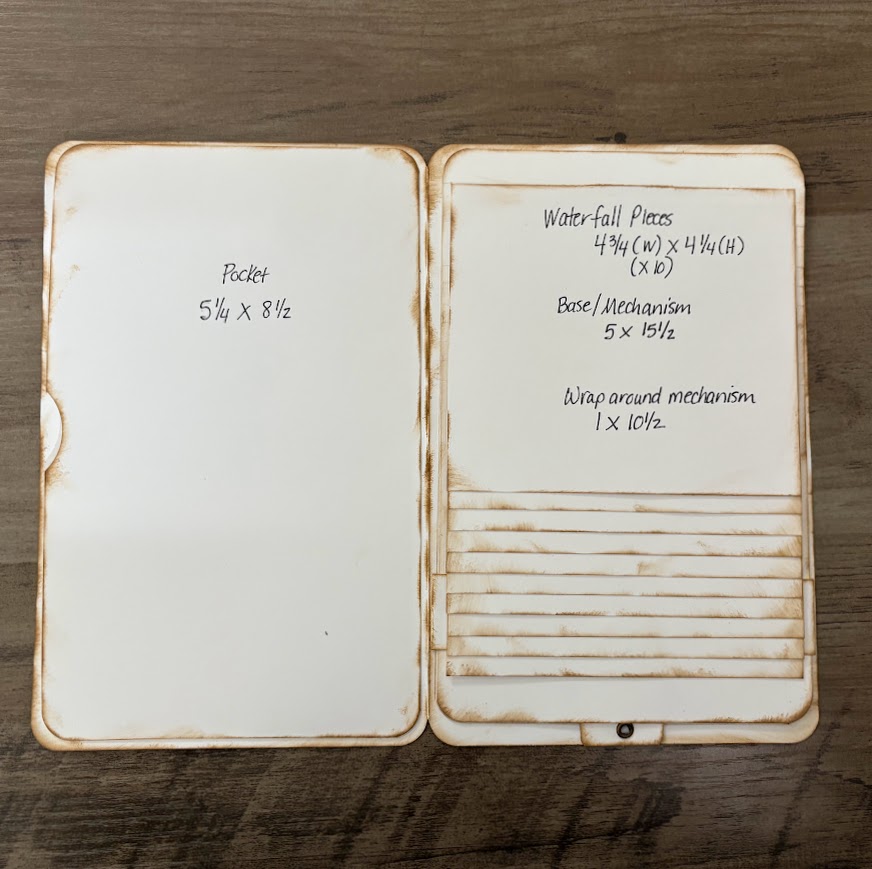 Pocket
5 1/4 X 8 1/2
Waterfall Pieces
4 3/4 (W) X 4 1/4 (H)
(X 10)
Base/Mechanism
5 X 15 1/2
Wrap around mechanism
1 X 10 1/2